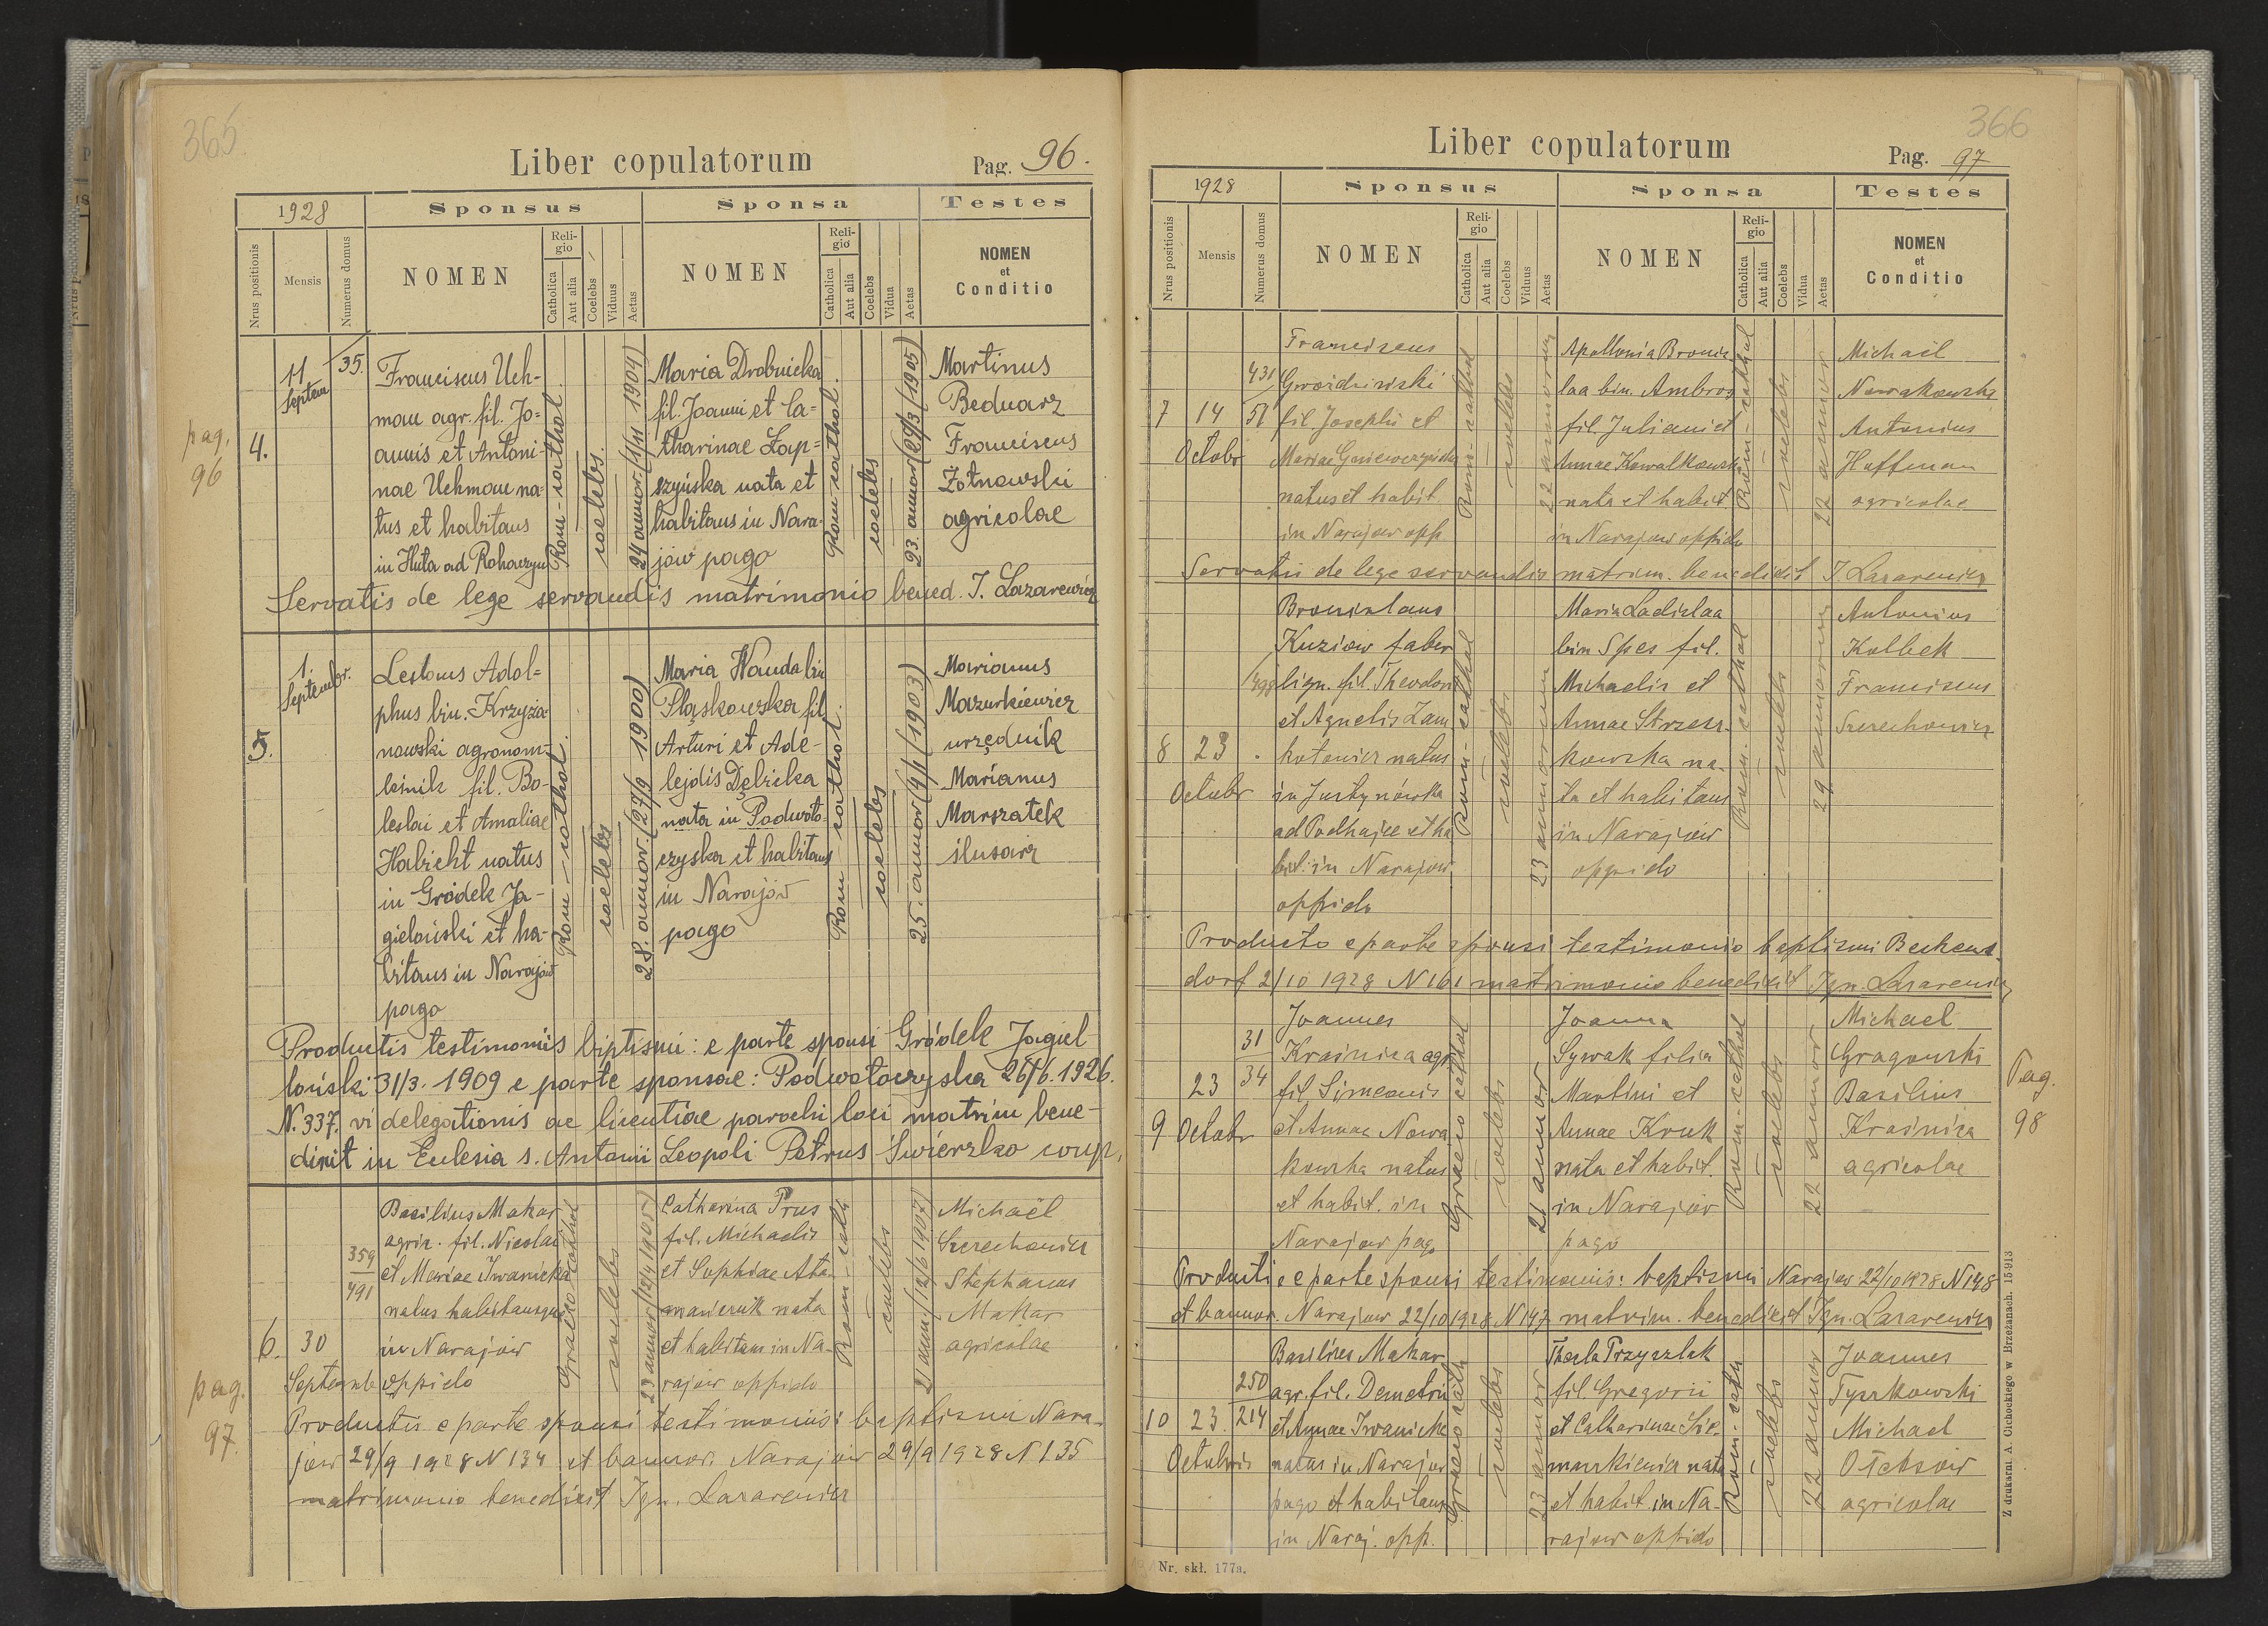 365
Liber copulatorum
Pag. 96.
1928
Sponsus
Sponsa
Testes
Nrus positionis
Mensis
Numerus domus
NOMEN
Religio
Catholica
Aut alia
Coelebs
Viduus
Aetas
NOMEN
Religio
Catholica
Aut alia
Coelebs
Vidua
Aetas
NOMEN
et
Conditio
pag.
96
4.
11
Septem
35.
Franciscus Uch-
man agr. fil. Jo=
annis et Antoni-
nae Uchman na-
tus et habitans
in Huta ad Rohaczyn
Rom-cathol.
coelebs.
24 annor. (1/11 1904)
Maria Drobnicka
fil. Joanni et Ca=
tharinae Łap=
szyńska nata et
habitans in Nara-
jów pago
Rom-cathol.
coelebs
23. annor (25/3 1905)
Martinus
Bednarz
Franciscus
Żotnowski
agricolae
Servatis de lege servandis matrimonio bened. I. Lazarewicz
5.
1.
Septembr.
Lestous Adol=
phus bin. Krzyża-
nowski agronom-
leśnik fil. Bo-
leslai et Amaliae
Habicht natus
in Gródek Ja-
gieloński et ha-
bitans in Narajów
pago
Rom-cathol.
coelebs
28. annor. (27/9 1900)
Maria Wanda bin
Płaskowska fil
Arturi et Ade-
lejdis Dębicka
nata in Podwoło-
czyska et habitans
in Narajów
pago
Rom cathol.
coelebs
25. annor (4/1 1903)
Marianus
Mazurkiewicz
urzędnik
Marianus
Marszałek
ślusarz
Productis testimoniis biptismi: e parte sponsi Gródek Jagiel
loński 31/3. 1909 e parte sponsae: Podwołoczyska 26/6. 1926.
N. 337. vi delegationis ac licentiae parochi loci matrim bene-
dixit in Eclesia s. Antonii Leopoli Petrus Świerzko coop.
6.
30
Septemb
359
491
Basilius Makar
agric. fil. Nicolai
et Mariae Iwanicka
natus habitansque
in Narajów
oppido
Graeco cathol
coelebs
23 annor (12/4 1905)
Catharina Prus
fil. Michaelis
et Sophiae Ata-
manieruk nata
et habitans in Na-
rajow oppido
Rom-cath
coelebs
21 ann (12/6 1907)
Michael
Szerechowicz
Stephanus
Makar
agricolae
pag.
97.
Productis e parte sponsi testimoniis: baptismi Nara-
jow 29/9 1928 N 134 et bannor. Narajow 29/9 1928 N 135
matrimonio benedixit Ign. Lazarewicz
366
Liber copulatorum
Pag. 97
1928
Sponsus
Sponsa
Testes
Nrus positionis
Mensis
Numerus domus
NOMEN
Religio
Catholica
Aut alia
Coelebs
Viduus
Aetas
NOMEN
Religio
Catholica
Aut alia
Coelebs
Vidua
Aetas
NOMEN
et
Conditio
7
14
Octobr
431
51
Franciscus
Gwoździński
fil Josephi et
Mariae
natus et habit.
in Narajow opp.
Rom-cathol
coelebs
22 annorum
Apollonia Bronis
laa bin. Ambros
fil Juliani et
Annae Kowalkowska
nata et habit
in Narajow oppido
Rom-cathol
coelebs
22 annor
Michael
Nowakowski
Antonius
Hoffman
agricolae
Servatis de lege servandis matrim. benedixit I. Lazarewicz
8
23
Octobr
498
Bronislaus
Kuziow faber
lign. fil. Theodori
et Agnetis Zaw
kotowicz natus
in Justynówka
ad Podhajce et ha
bit. in Narajow
oppido
Rom-cathol
coelebs
23 annorum
Maria Ladislaa
bin Spes fil.
Michaelis et
Annae Strzesz-
kowska na-
ta et habitans
in Narajów
oppido
Rom. cathol
coelebs
29 annorum
Antonius
Kolbek
Franciscus
Szerechowicz
Producto e parte sponsi testimonio baptismi Bekens-
dorf 2/10 1928 N 161 matrimonio benedixit Ign. Lazarewicz
9
23
Octobr
31
34
Joannes
Kraśnica agr
fil Simeonis
et Annae Nowa
kowska natus
et habit. in
Narajow pago
Graeco cathol
coelebs
21 annor
Joanna
Sywak filia
Martini et
Annae Kruk
nata et habit.
in Narajów
pago
Rom-cathol
coelebs
22 annor
Michael
Gragowski
Basilius
Kraśnica
agricolae
Pag.
98
Productis e parte sponsi testimoniis: baptismi Narajow 22/10 1928 N 148
et bannor. Narajow 22/10 1928 N 147 matrim. benedixit Ign. Lazarewicz
10
23
Octobris
250
214
Basilius Makar
agr. fil. Demetrii
et Annae Iwanicka
natus in Narajow
pago et habitans
in Naraj. opp.
Graeco cath
coelebs
23 annor
Thecla Przyszlak
fil. Gregorii
et Catharinae Sie-
maszkiewicz nata
et habit. in Na-
rajow oppido
Rom-cath
coelebs
22 annor
Joannes
Tyszkowski
Michael
Oleksów
agricolae
Nr. skł. 177a.
Z drukarni A. Cichockiego w Brzeżanach. 15·913